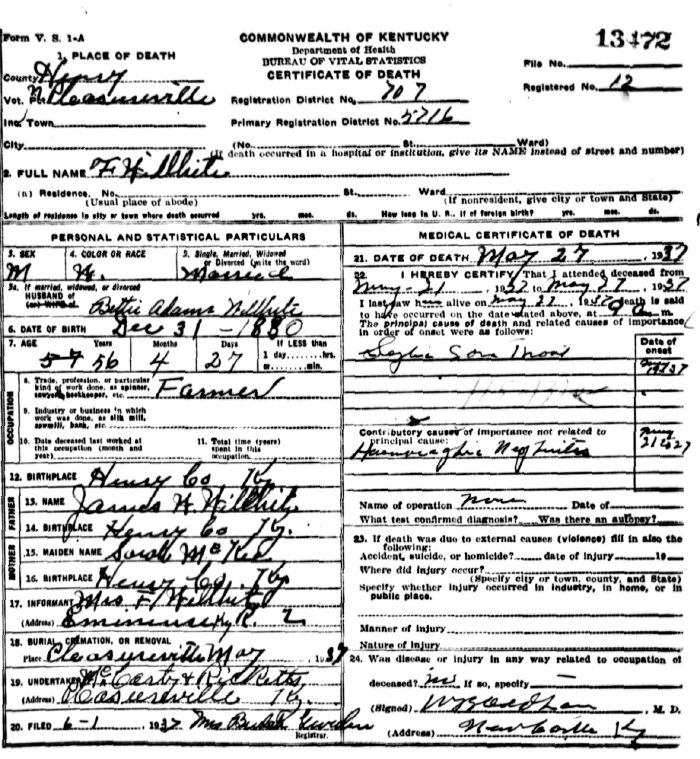 Form V. S. 1-A
COMMONWEALTH OF KENTUCKY
Department of Health
BUREAU OF VITAL STATISTICS
CERTIFICATE OF DEATH
13472
File No.
Registered No. 12
1. PLACE OF DEATH
County Henry
Vot. Pct. N Pleasureville
Inc. Town
City
Registration District No. 707
Primary Registration District No. 5716
(No. St. Ward)
(If death occurred in a hospital or institution, give its NAME instead of street and number)
2. FULL NAME F Wilhite
(a) Residence. No. St. Ward
(Usual place of abode) (If nonresident, give city or town and State)
Length of residence in city or town where death occurred yrs. mos. ds. How long in U. S., if of foreign birth? yrs. mos. ds.
PERSONAL AND STATISTICAL PARTICULARS
3. SEX 4. COLOR OR RACE 5. Single, Married, Widowed or Divorced (write the word)
M W. Married
5a. If married, widowed, or divorced
HUSBAND of
(or) WIFE of Bettie Adams Wilhite
6. DATE OF BIRTH Dec 31 - 1880
7. AGE Years Months Days If LESS than
57 56 4 27 1 day hrs.
or min.
OCCUPATION
8. Trade, profession, or particular
kind of work done, as spinner,
sawyer, bookkeeper, etc. Farmer
9. Industry or business in which
work was done, as silk mill,
sawmill, bank, etc.
10. Date deceased last worked at
this occupation (month and
year)
11. Total time (years)
spent in this
occupation
12. BIRTHPLACE Henry Co Ky.
FATHER
13. NAME James W Wilhite
14. BIRTHPLACE Henry Co Ky.
MOTHER
15. MAIDEN NAME Sarah McKee
16. BIRTHPLACE Henry Co. Ky
17. INFORMANT Mrs F Wilhite
(Address) Eminence Ky R. 2
18. BURIAL, CREMATION, OR REMOVAL
Place Pleasureville May 1937
19. UNDERTAKER McCarty & Ricketts
(Address) Pleasureville Ky.
20. FILED 6-1 1937 Mrs
Registrar.
MEDICAL CERTIFICATE OF DEATH
21. DATE OF DEATH May 27, 1937
22. I HEREBY CERTIFY, That I attended deceased from
May-21, 1937 to May 27, 1937
I last saw him alive on May 27, 1937 death is said
to have occurred on the date stated above, at m.
The principal cause of death and related causes of importance
in order of onset were as follows:
Date of
onset
Sore Throat
Contributory causes of importance not related to
principal cause:
Haemorraghic Nephritis
Name of operation None Date of
What test confirmed diagnosis? Was there an autopsy?
23. If death was due to external causes (violence) fill in also the
following:
Accident, suicide, or homicide? date of injury 19
Where did injury occur?
(Specify city or town, county, and State)
Specify whether injury occurred in industry, in home, or in
public place.
Manner of injury
Nature of injury
24. Was disease or injury in any way related to occupation of
deceased? no If so, specify —
(Signed) M. D.
(Address) New Castle Ky